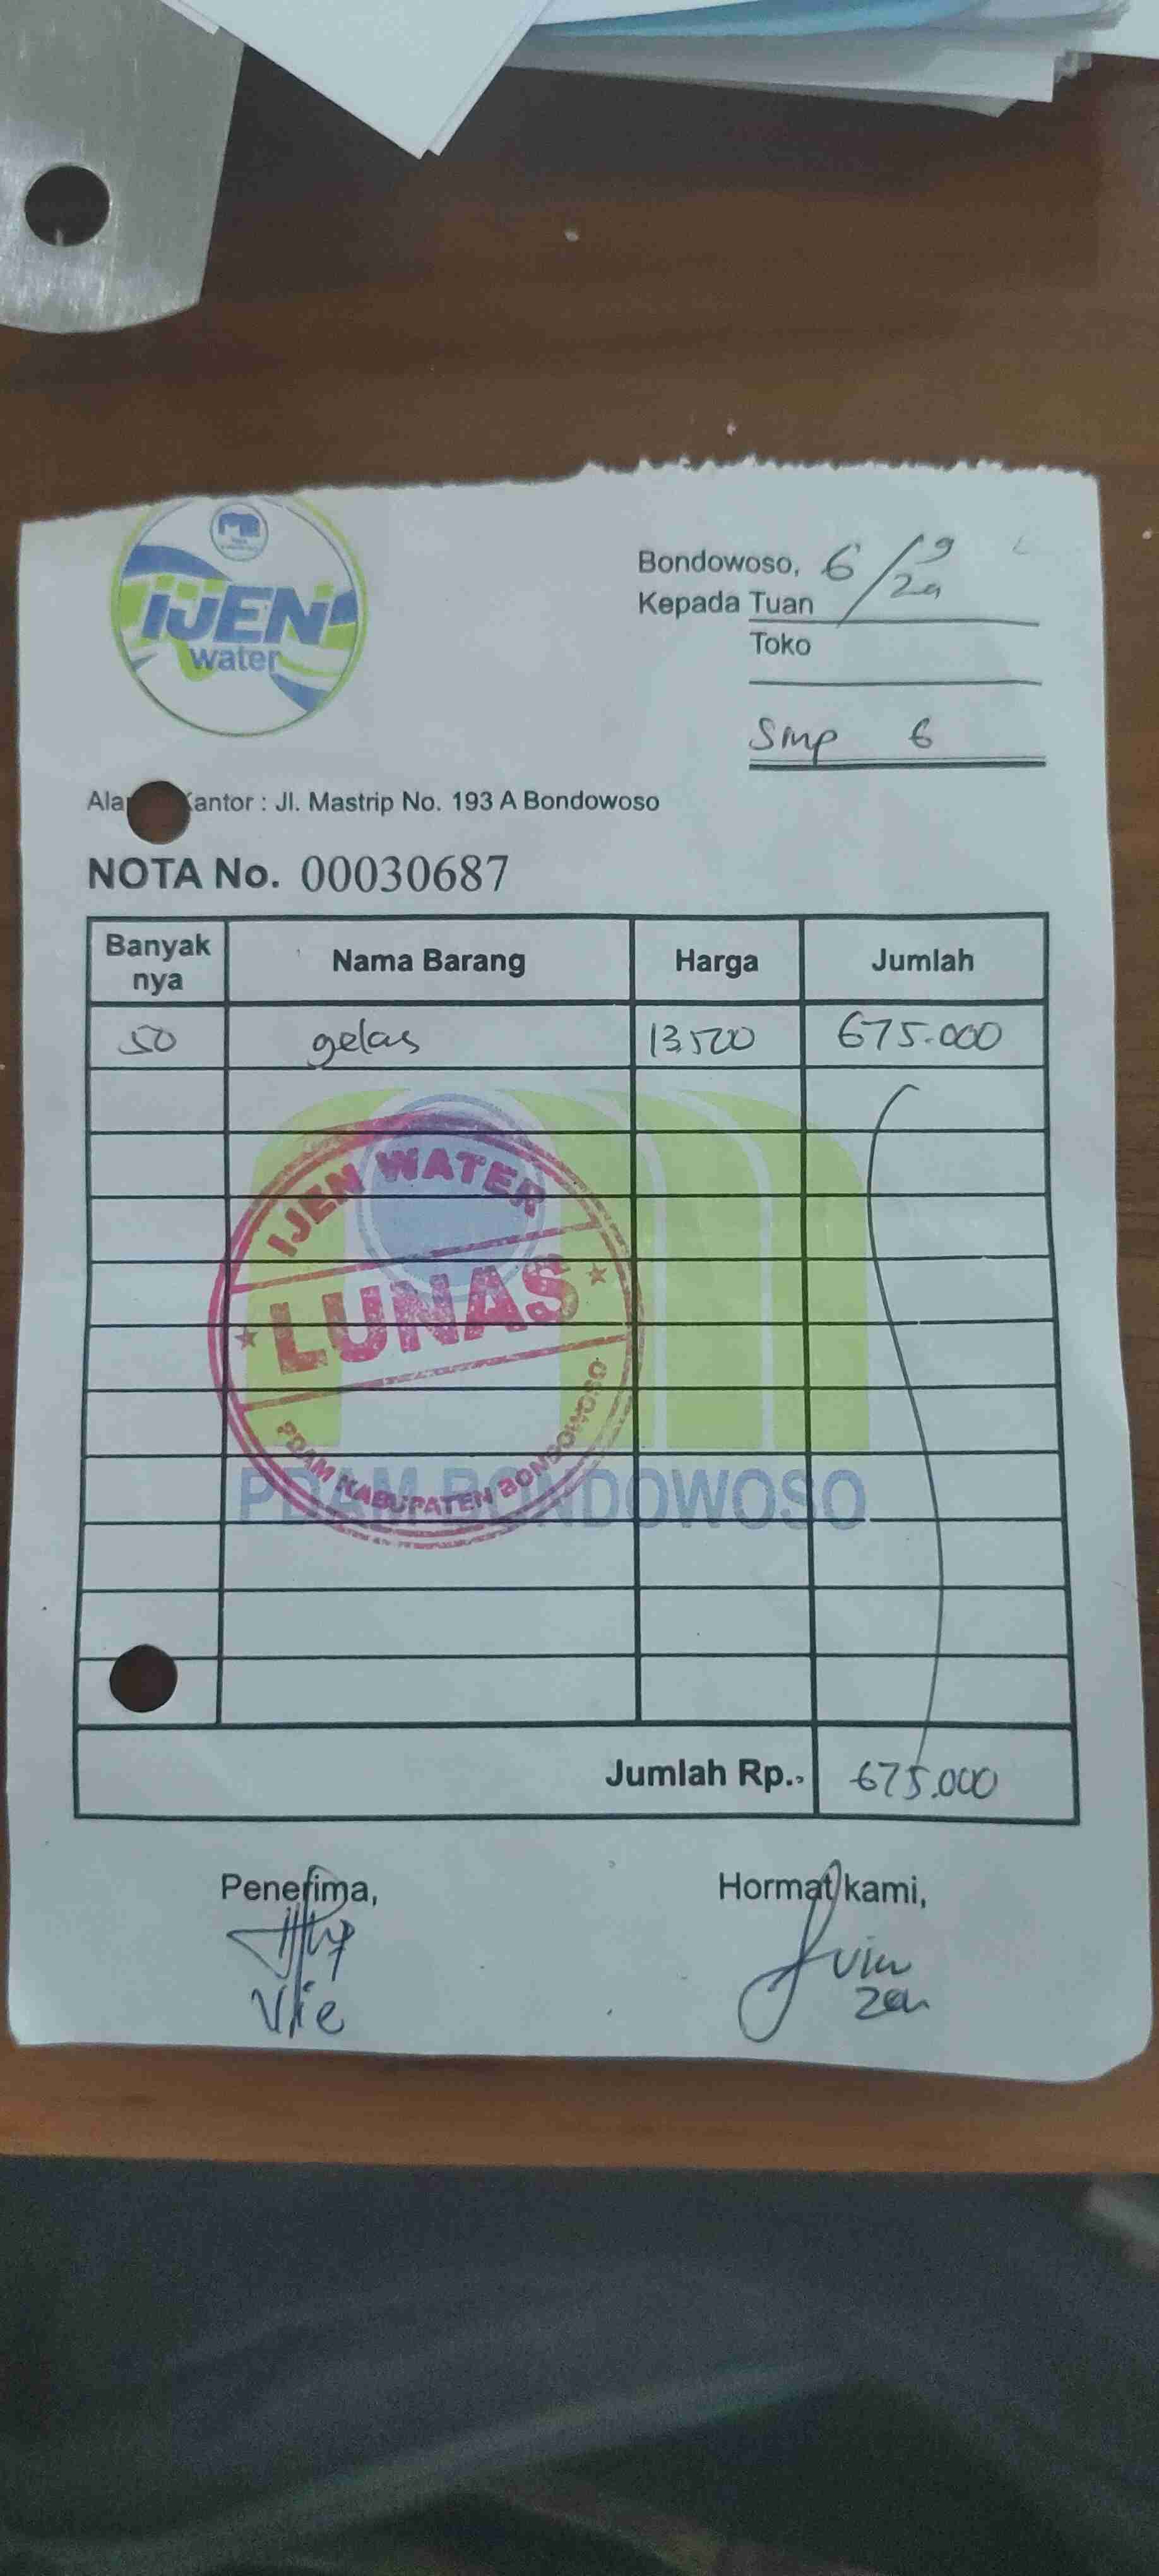 IJEN
water
Bondowoso, 6/9
Kepada Tuan
Toko
Smp 6
Ala antor : Jl. Mastrip No. 193 A Bondowoso
NOTA No. 00030687
Banyak nya Nama Barang Harga Jumlah
50 gelas 13.500 675.000
IJEN WATER
LUNAS
PDAM KABUPATEN BONDOWOSO
PDAM BONDOWOSO
Jumlah Rp., 675.000
Penerima, Hormat kami,